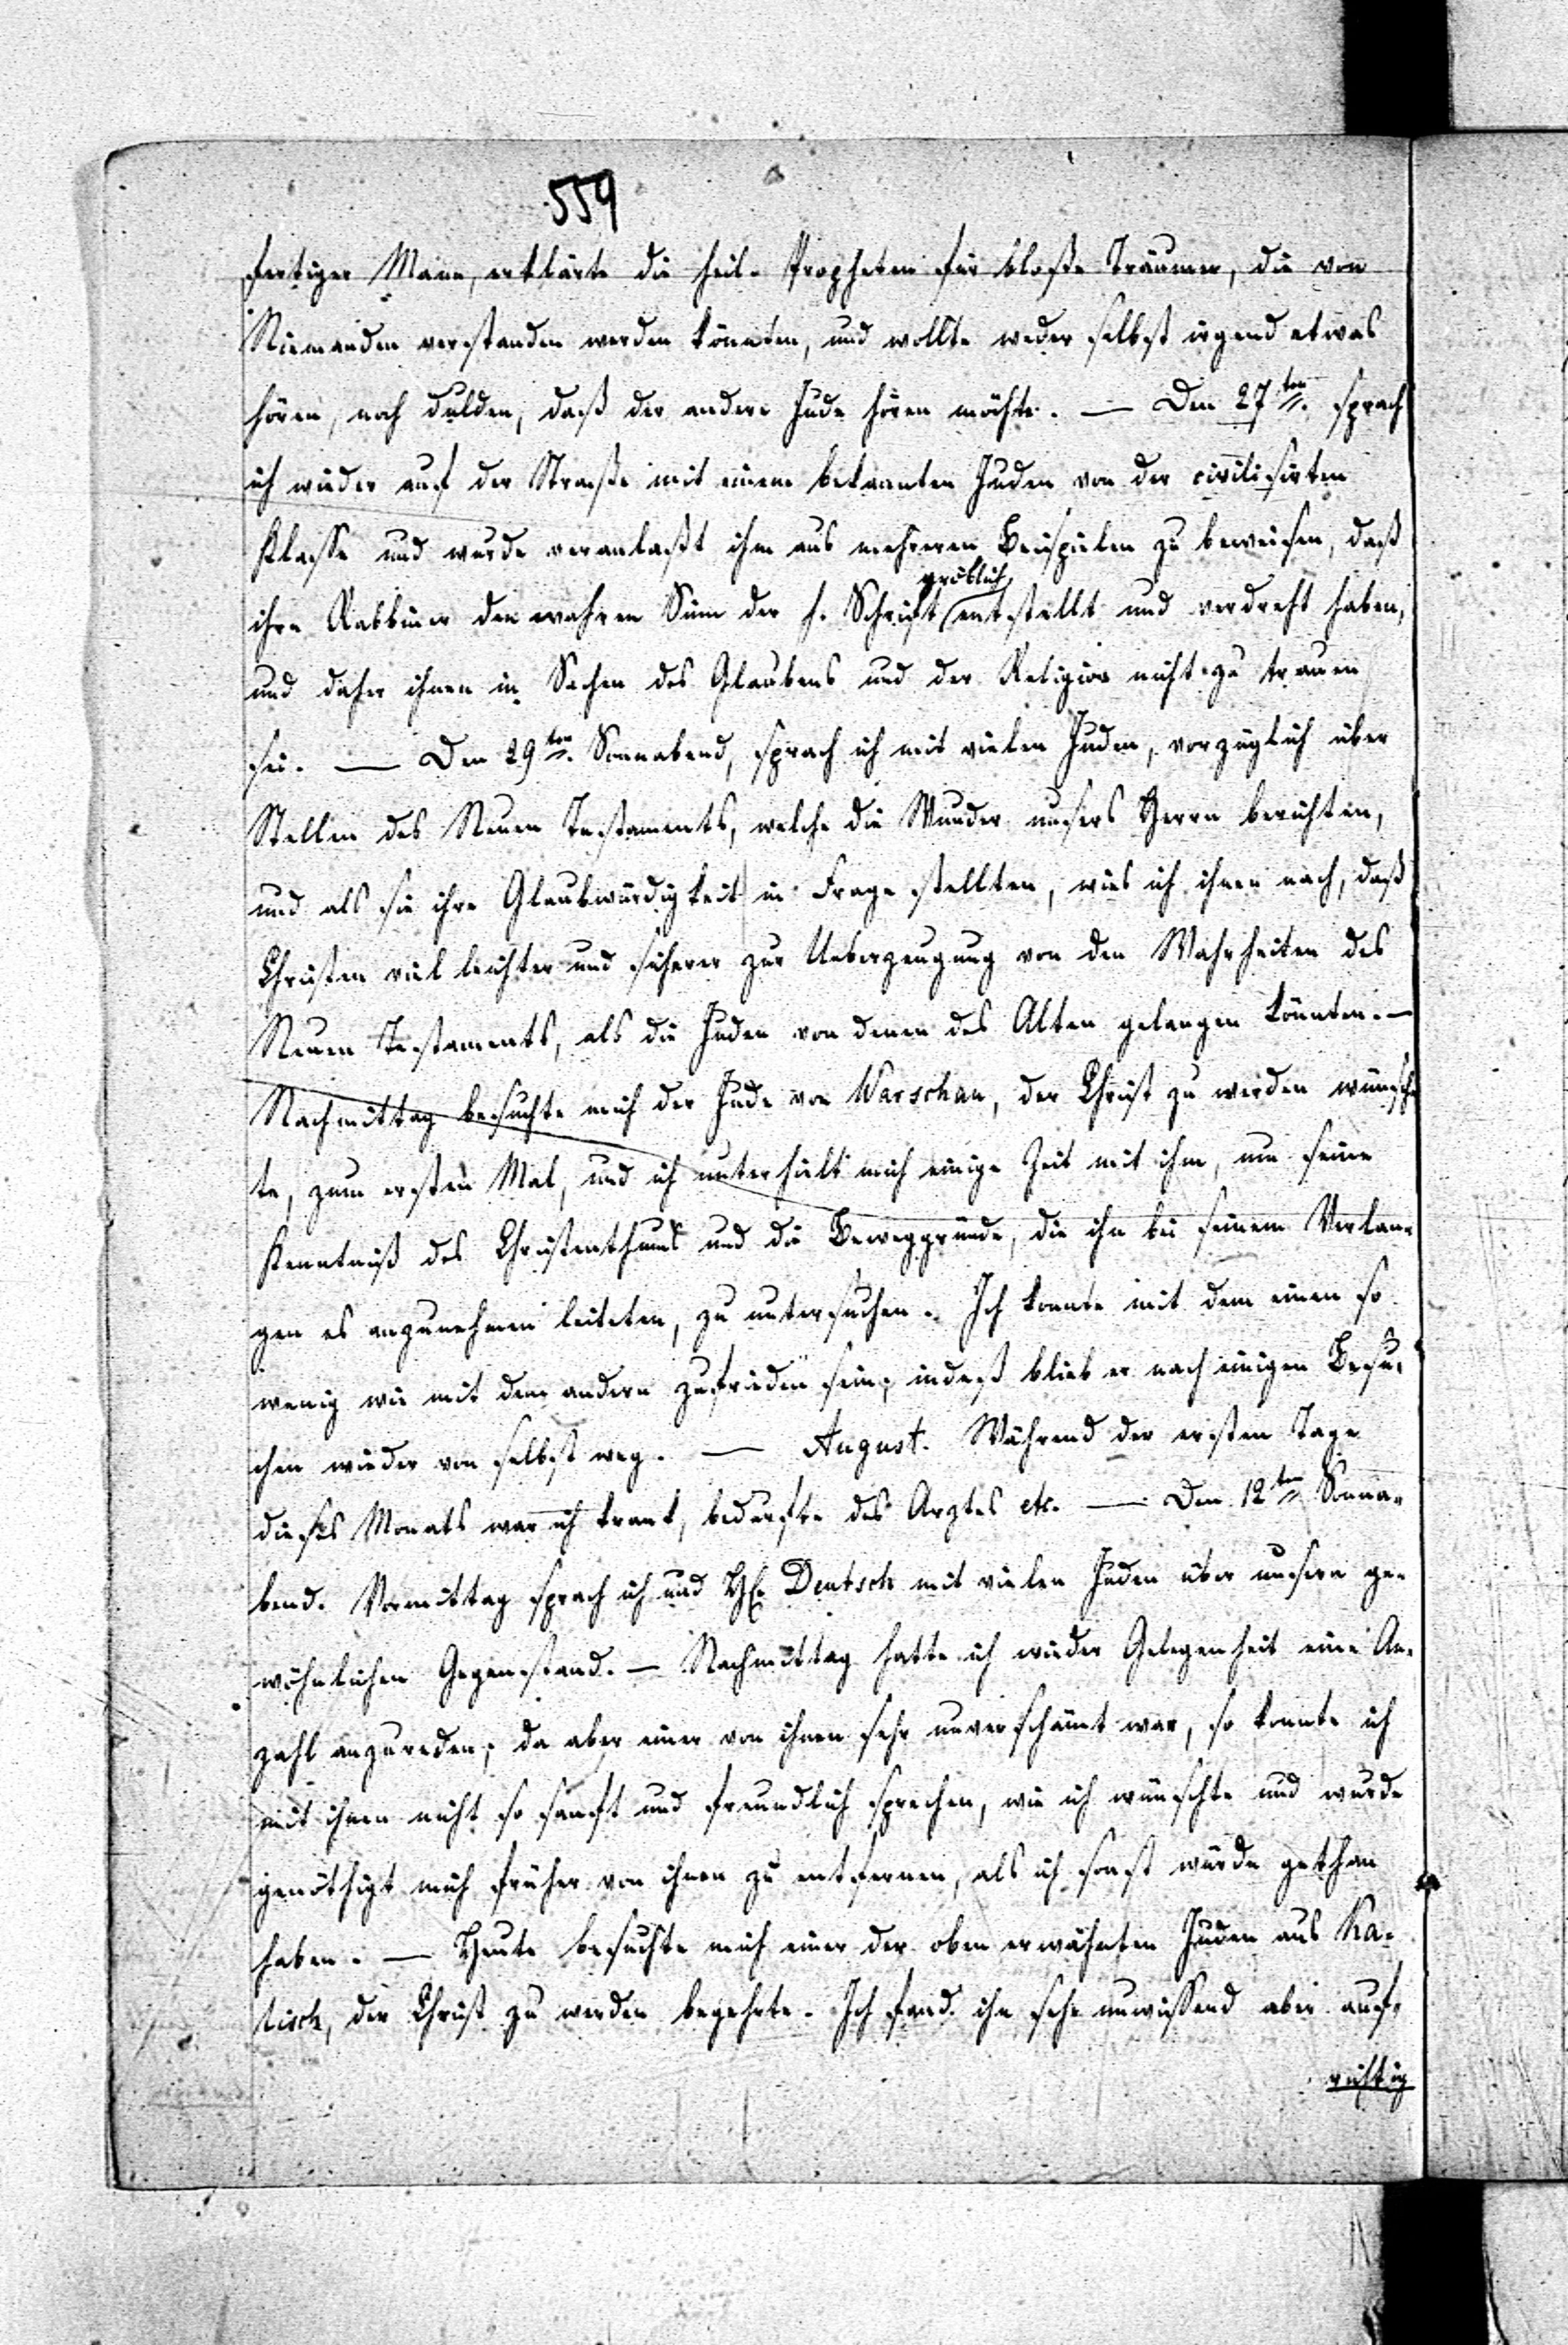 559
fertiger Mann, erklärte die heil. Propheten für bloße Träumer, die von
Niemanden verstanden werden könnten, und wollte weder selbst irgend etwas
hören, noch dulden, daß der andere Jude hören möchte. — Den 27ten. sprach
ich wieder auf der Straße mit einem bekannten Juden von der civilisirten
Klasse und wurde veranlaßt ihm aus mehreren Beispielen zu beweisen, daß
gröblich
ihre Rabbiner den wahren Sinn der h. Schrift entstellt und verdreht haben,
und daher ihnen in Sachen des Glaubens und der Religion nicht zu trauen
sei. — Den 29ten. Sonnabend, sprach ich mit vielen Juden, vorzüglich über
Stellen des Neuen Testaments, welche die Wunder unsers Herrn berichten,
und als sie ihre Glaubwürdigkeit in Frage stellten, wies ich ihnen nach, daß
Christen viel leichter und sicherer zur Ueberzeugung von den Wahrheiten des
Neuen Testaments, als die Juden von denen des Alten gelangen könnten. —
Nachmittag besuchte mich der Jude von Warschau, der Christ zu werden wünsch
te, zum ersten Mal, und ich unterhielt mich einige Zeit mit ihm, um seine
Kenntniß des Christenthums und die Beweggründe, die ihn bei seinem Verlan-
gen es anzunehmen leiteten, zu untersuchen. Ich konnte mit dem einen so
wenig wie mit dem andern zufrieden sein; indeß blieb er nach einigen Besu-
chen wieder von selbst weg. — August. Während der ersten Tage
dieses Monats war ich krank, bedurfte des Arztes etc. — Den 12ten Sonna-
bend. Vormittag sprach ich und H. Deutsch mit vielen Juden über unsern ge-
wöhnlichen Gegenstand. — Nachmittag hatte ich wieder Gelegenheit eine An-
zahl anzureden; da aber einer von ihnen sehr unverschämt war, so konnte ich
mit ihnen nicht so sanft und freundlich sprechen, wie ich wünschte und wurde
genöthigt mich früher von ihnen zu entfernen, als ich sonst würde gethan
haben. — Heute besuchte mich einer der oben erwähnten Juden aus Ka-
lisch, der Christ zu werden begehrte. Ich fand ihn sehr unwissend aber auf-
richtig